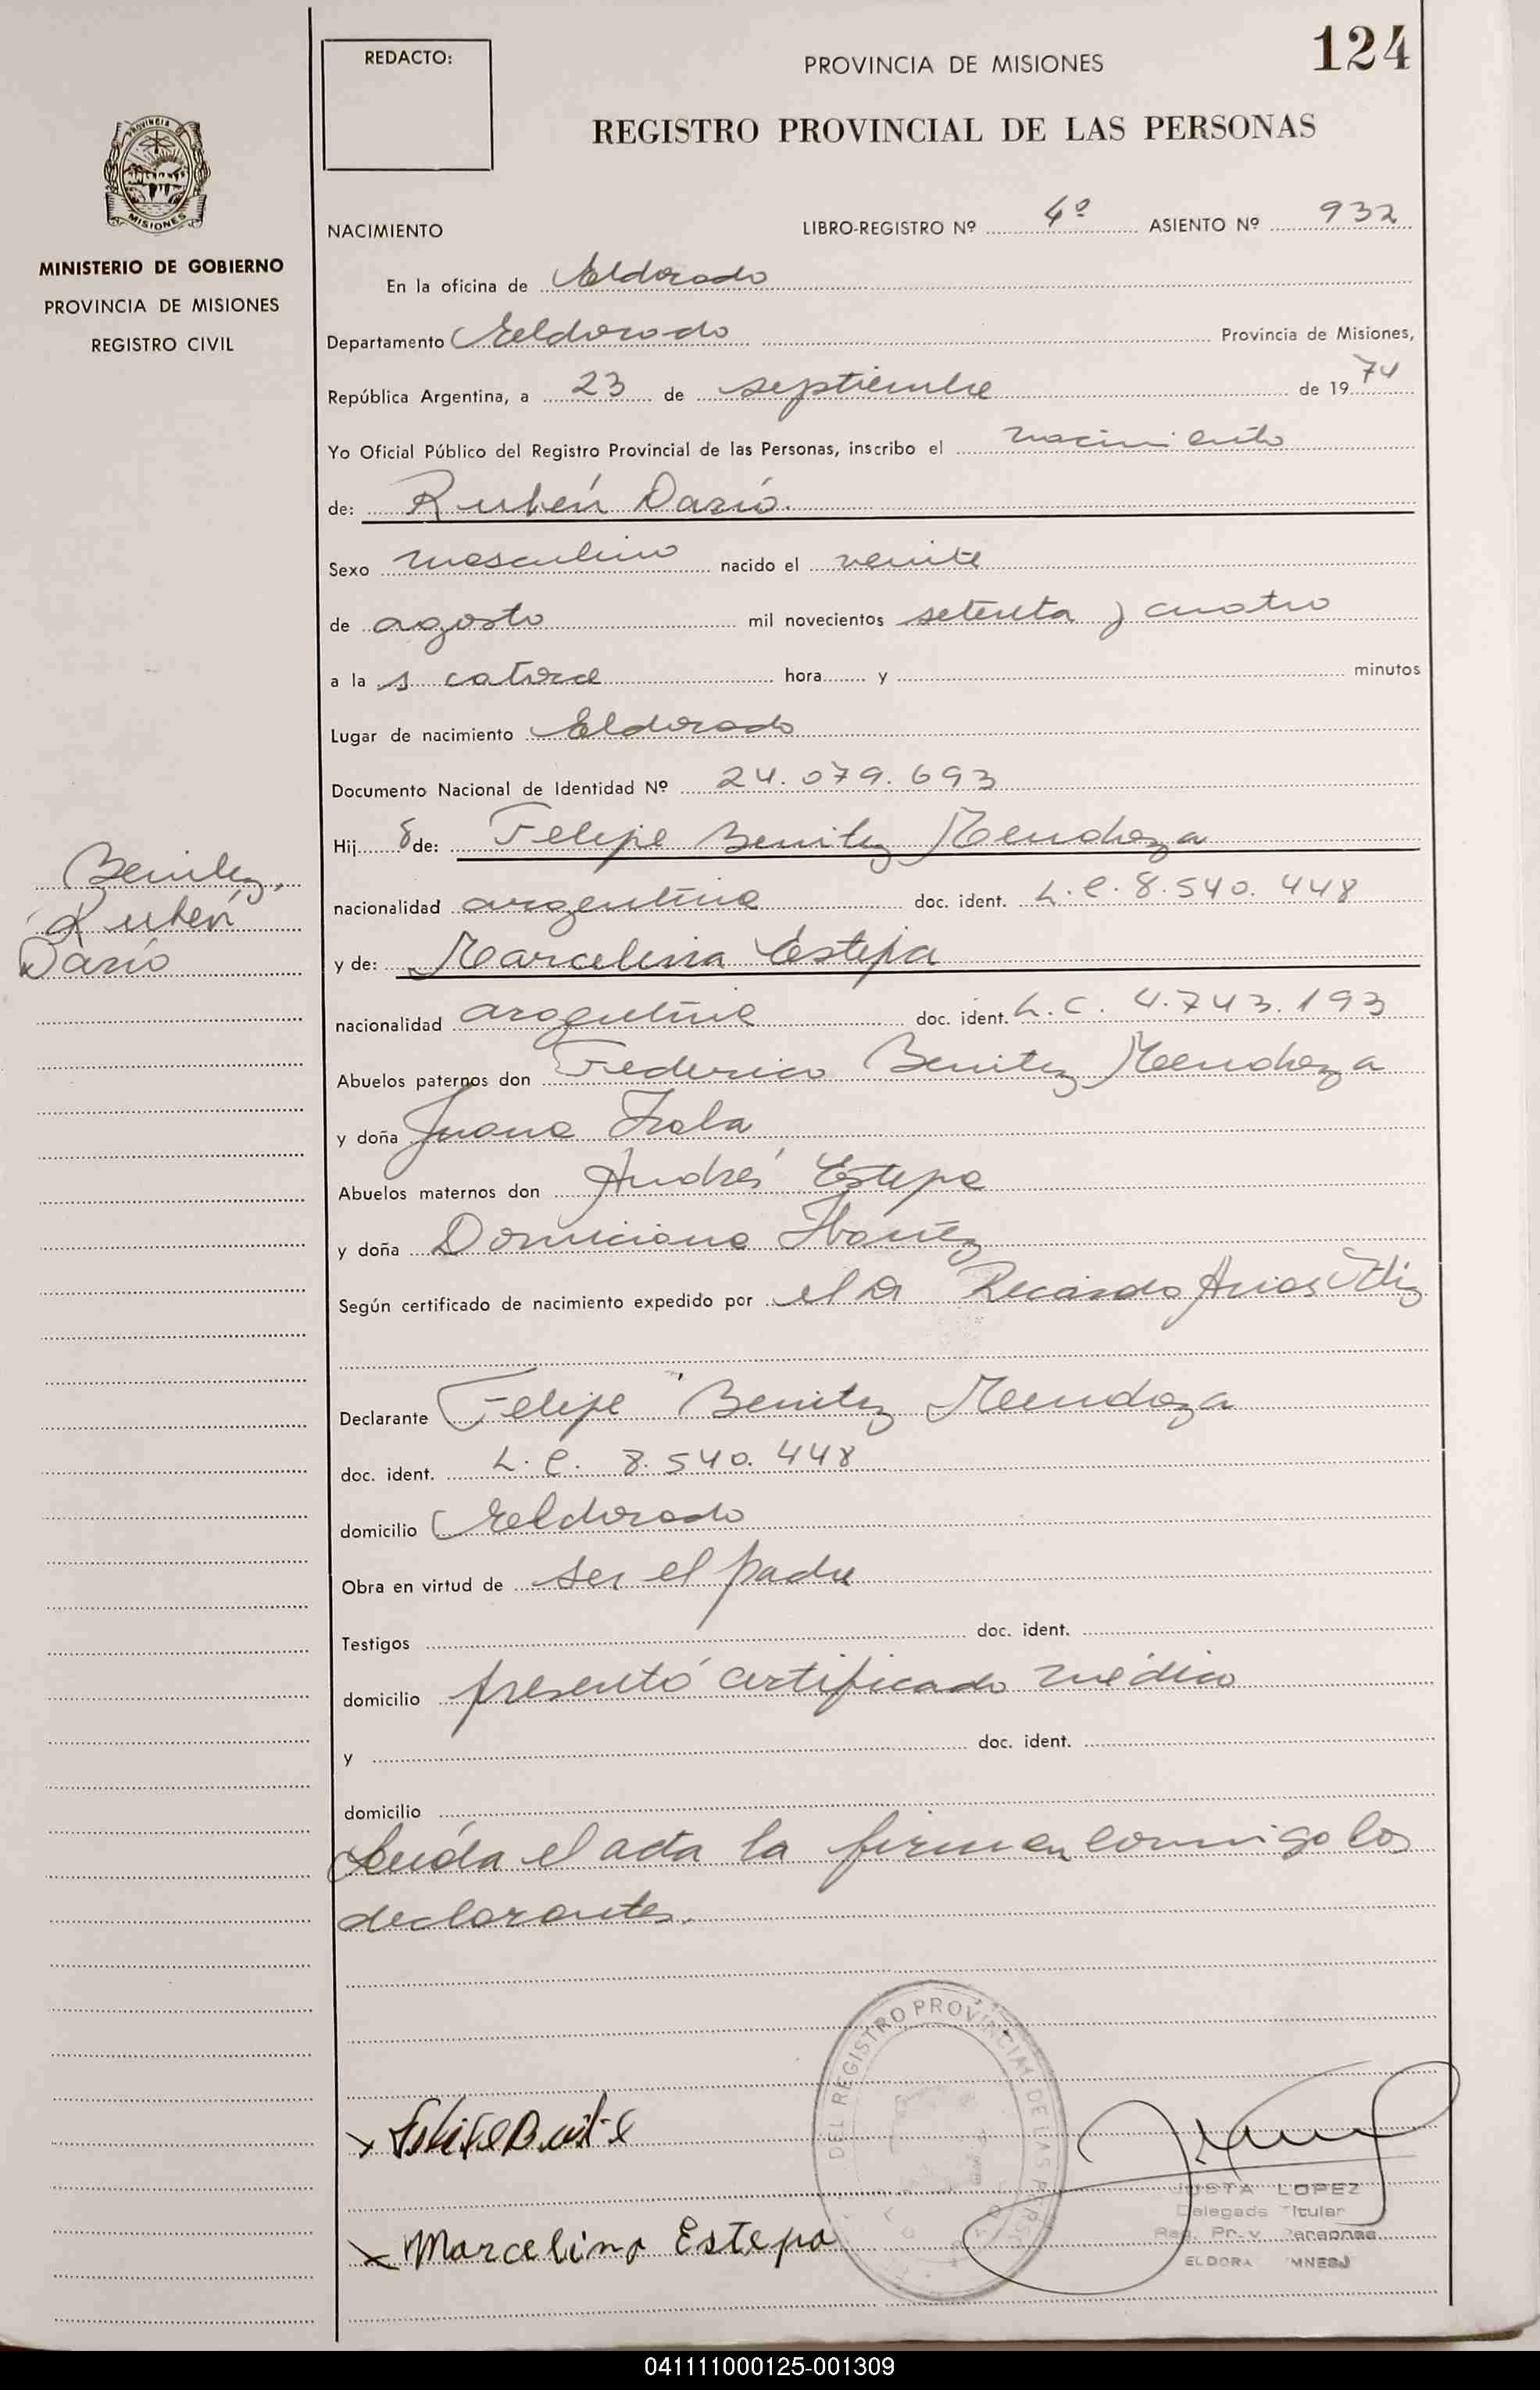 REDACTO:
PROVINCIA DE MISIONES
124
REGISTRO PROVINCIAL DE LAS PERSONAS
PROVINCIA DE
MISIONES
MINISTERIO DE GOBIERNO
PROVINCIA DE MISIONES
REGISTRO CIVIL
NACIMIENTO LIBRO-REGISTRO Nº 4º ASIENTO Nº 932
En la oficina de Eldorado
Departamento Eldorado Provincia de Misiones,
República Argentina, a 23 de septiembre de 1974
Yo Oficial Público del Registro Provincial de las Personas, inscribo el nacimiento
de: Rubén Darío.
Sexo masculino nacido el veinte
de agosto mil novecientos setenta y cuatro
a la s catorce hora y minutos
Lugar de nacimiento Eldorado
Documento Nacional de Identidad Nº 24.079.693
Hij o de: Felipe Benitez Mendoza
nacionalidad argentina doc. ident. L.E. 8.540.448
y de: Marcelina Estepa
nacionalidad argentina doc. ident. L.C. 4.743.193
Benitez,
Rubén
Darío
Abuelos paternos don Federico Benitez Mendoza
y doña Juana Irala
Abuelos maternos don Andrés Estepa
y doña Domiciana Ibañez
Según certificado de nacimiento expedido por el Dr Ricardo Arias
Declarante Felipe Benitez Mendoza
doc. ident. L.E. 8.540.448
domicilio Eldorado
Obra en virtud de ser el padre
Testigos doc. ident.
domicilio presentó certificado médico
y doc. ident.
domicilio
Leída el acta la firman conmigo los
declarantes.
DEL REGISTRO PROVINCIAL DE LAS
x Marcelina Estepa
JUSTA LOPEZ
Delegada Titular
ELDORA
041111000125-001309